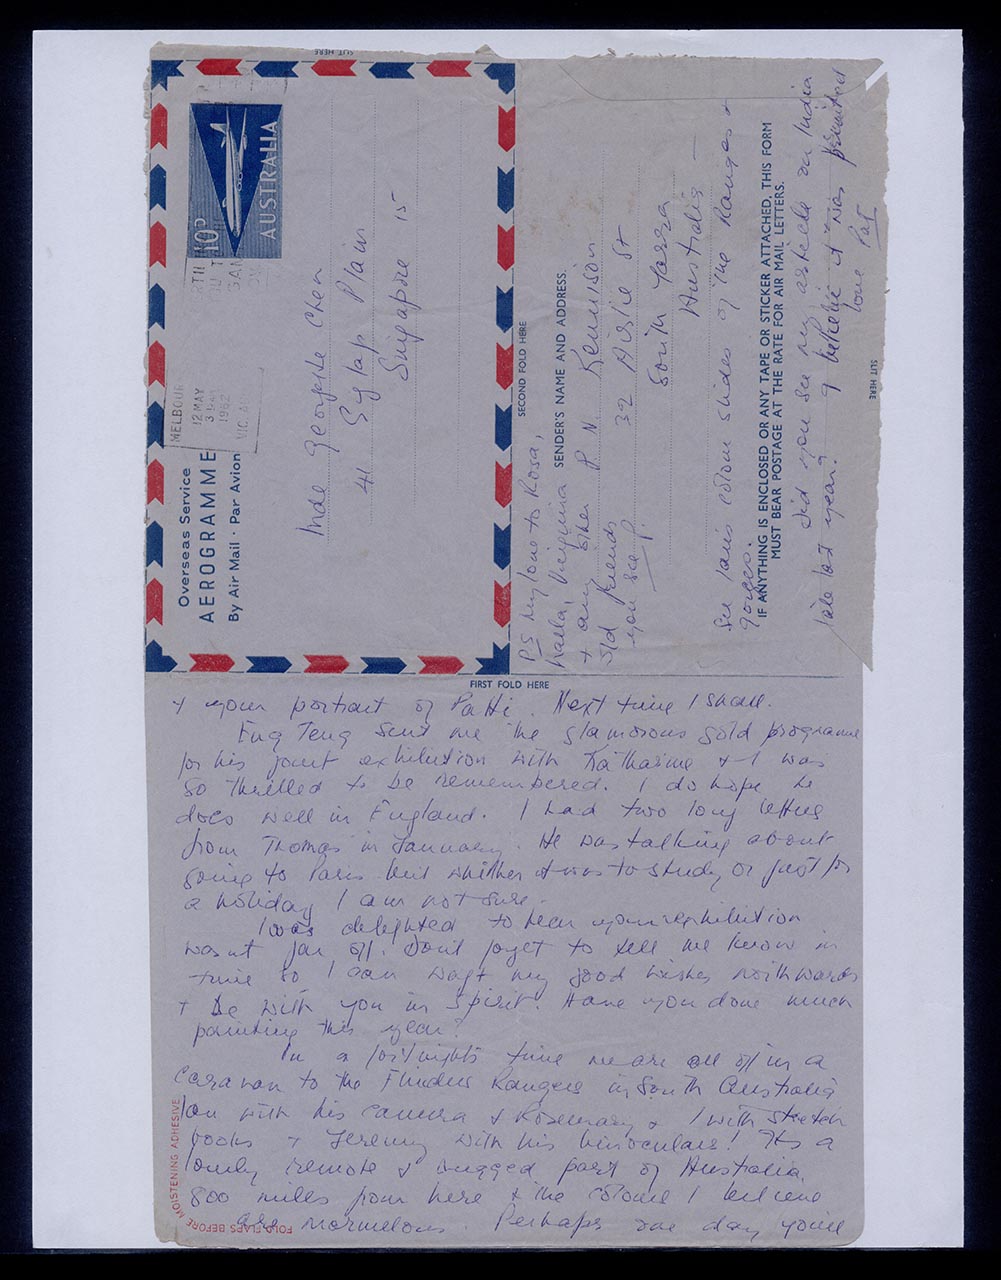 SLIT HERE
10D
AUSTRALIA
MELBOUR
12 MAY
1962
VIC. AU
Overseas Service
AEROGRAMME
By Air Mail · Par Avion
Mde Georgette Chen
41 Sglap Plain
Singapore 15
SECOND FOLD HERE
PS my love to Rosa,
Virginia
+ any other
old friends
you see P.
SENDER'S NAME AND ADDRESS
P N Kennison
32 St
South Yarra
Australia
see Ian's colour slides of the Ranges +
gorges.
IF ANYTHING IS ENCLOSED OR ANY TAPE OR STICKER ATTACHED, THIS FORM
MUST BEAR POSTAGE AT THE RATE FOR AIR MAIL LETTERS.
Did you see my article on India
late last year? I believe it was printed
love Pat
SLIT HERE
FIRST FOLD HERE
+ your portrait of Patti. Next time I shall.
Eng Teng sent me the glamorous gold programme
for his joint exhibition with Katharine + I was
so thrilled to be remembered. I do hope he
does well in England. I had two long letters
from Thomas in January. He was talking about
going to Paris but whether it was to study or just for
a holiday I am not sure.
I was delighted to hear your exhibition
wasnt far off. Dont forget to tell me know in
time so I can waft my good wishes northwards
+ be with you in spirit. Have you done much
painting this year?
In a fortnights time we are all off in a
caravan to the Flinders Ranges in South Australia
Ian with his camera + Rosemary + I with sketch
books + Jeremy with his binoculars! Its a
lonely remote + rugged part of Australia,
800 miles from here + the colours I believe
are marvelous. Perhaps one day you'll
MOISTENING ADHESIVE
FOLD FLAPS BEFORE